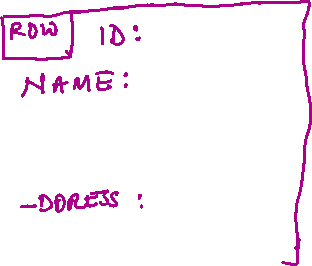 ROW ID:
NAME:
-DDRESS :